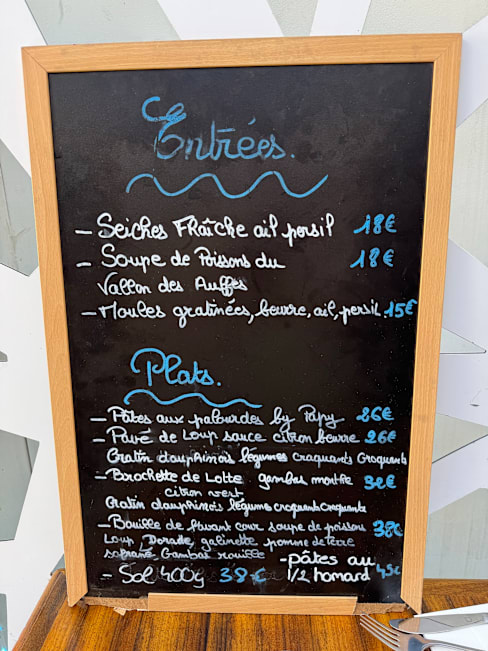 Entrées.
- Seiches Fraîche ail persil 18€
- Soupe de Poissons du 18€
Vallon des Auffes
- Moules gratinées, beurre, ail, persil. 15€
Plats.
- Pâtes aux palourdes by Papy 26€
- Pavé de Loup sauce citron beurre 26€
Gratin dauphinois légumes craquants Croquants
- Brochette de Lotte gambas 32€
citron vert
Gratin dauphinois légumes croquants
- Bouille de soupe de poissons 38€
Loup, Dorade, galinette pomme de terre
safrané Gambas rouille
- Sol 400g 38€
- pâtes au
1/2 homard 45€